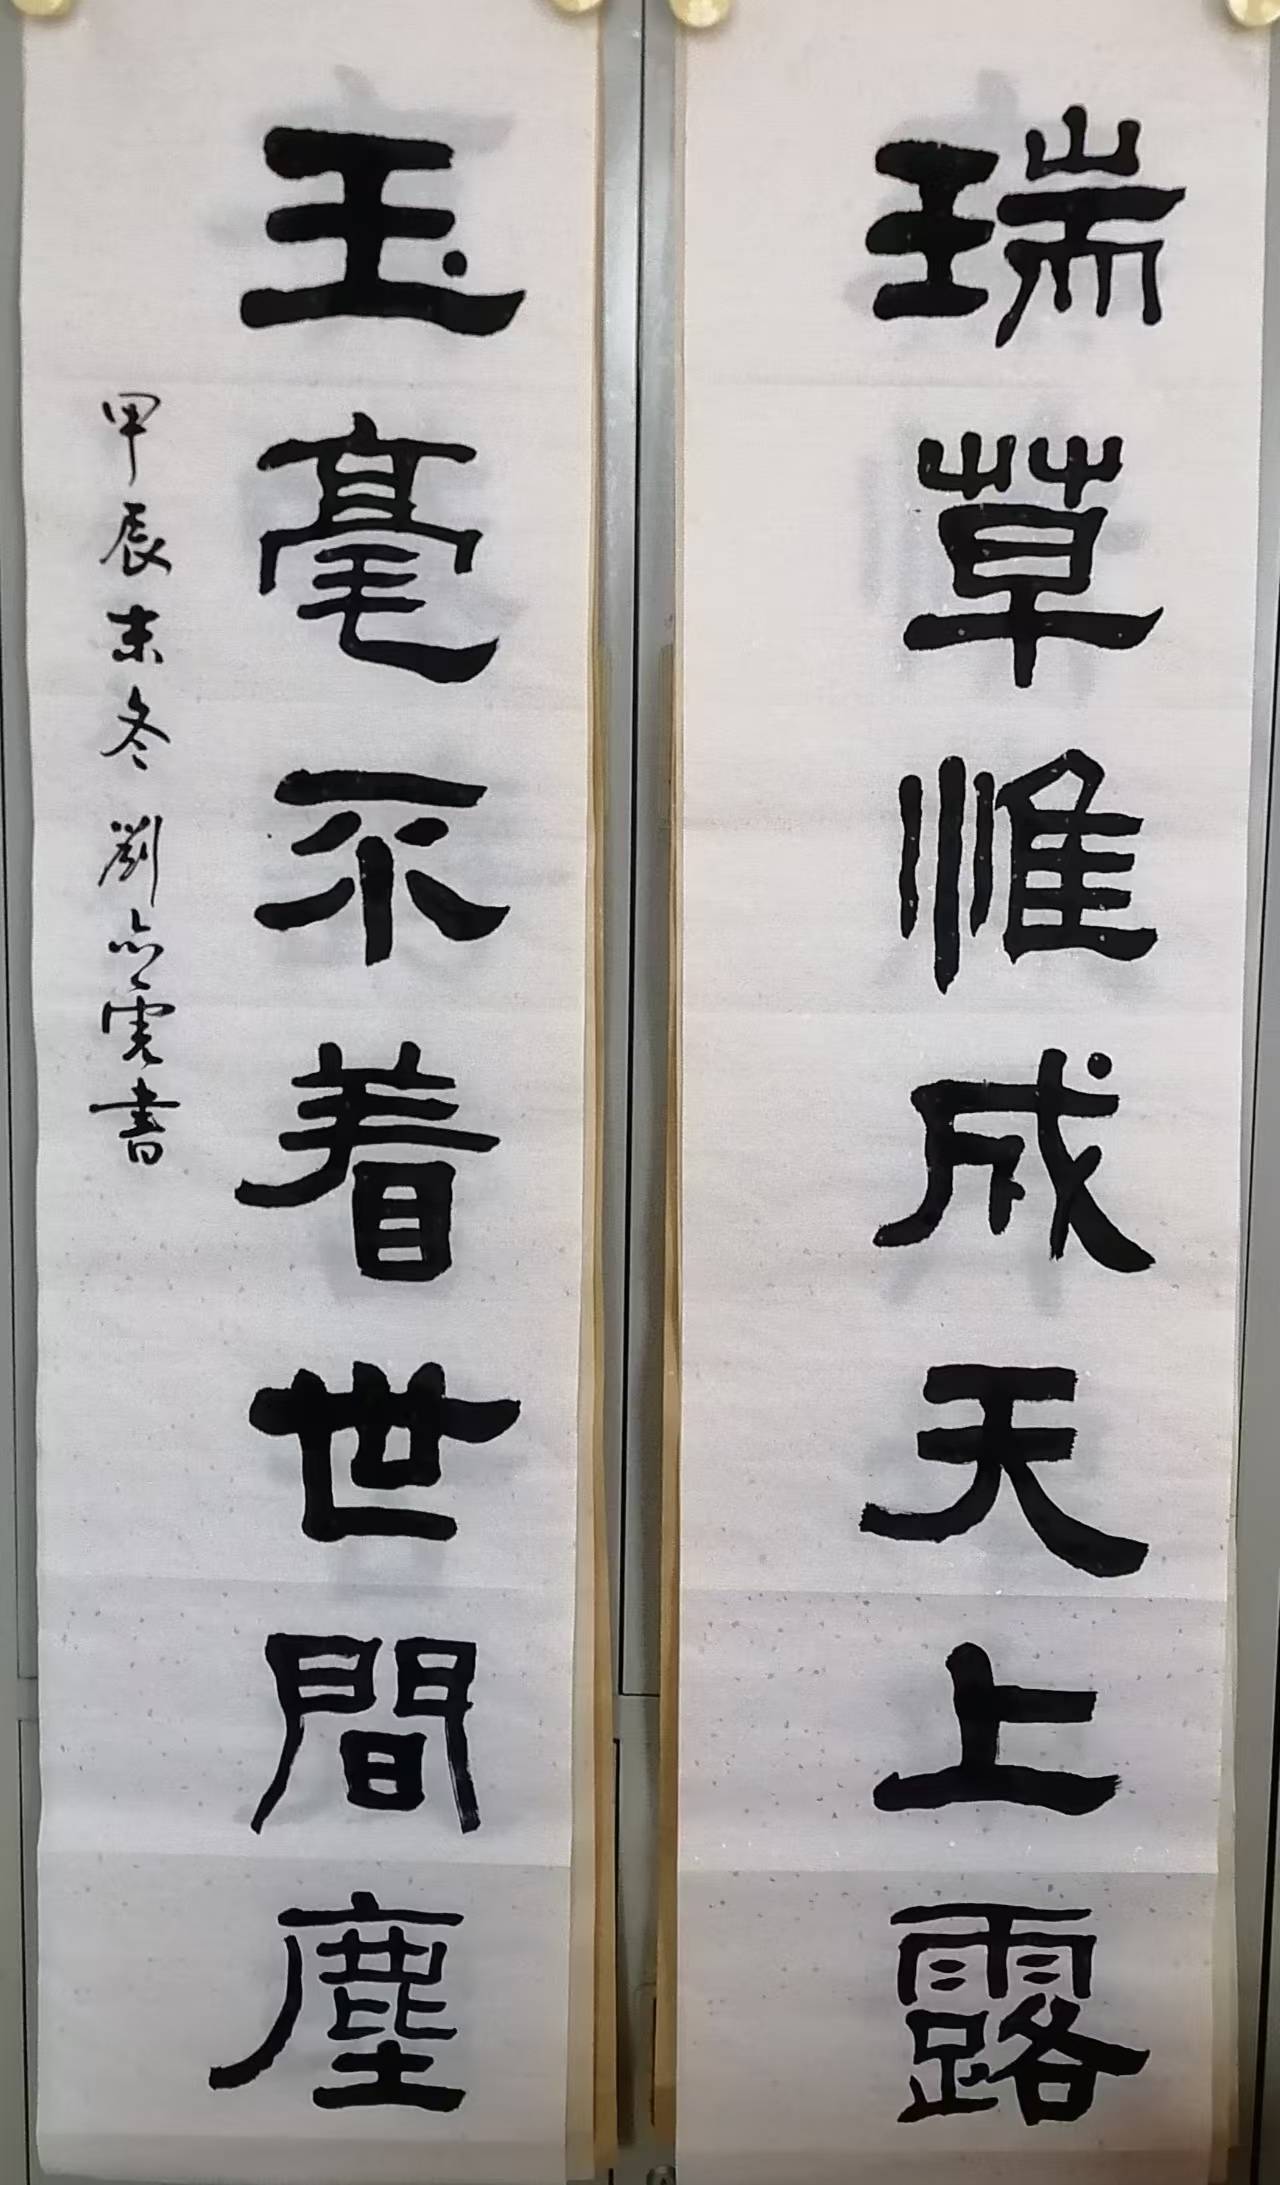 瑞草惟成天上露
玉毫不着世間塵
甲辰末冬劉亦寬書